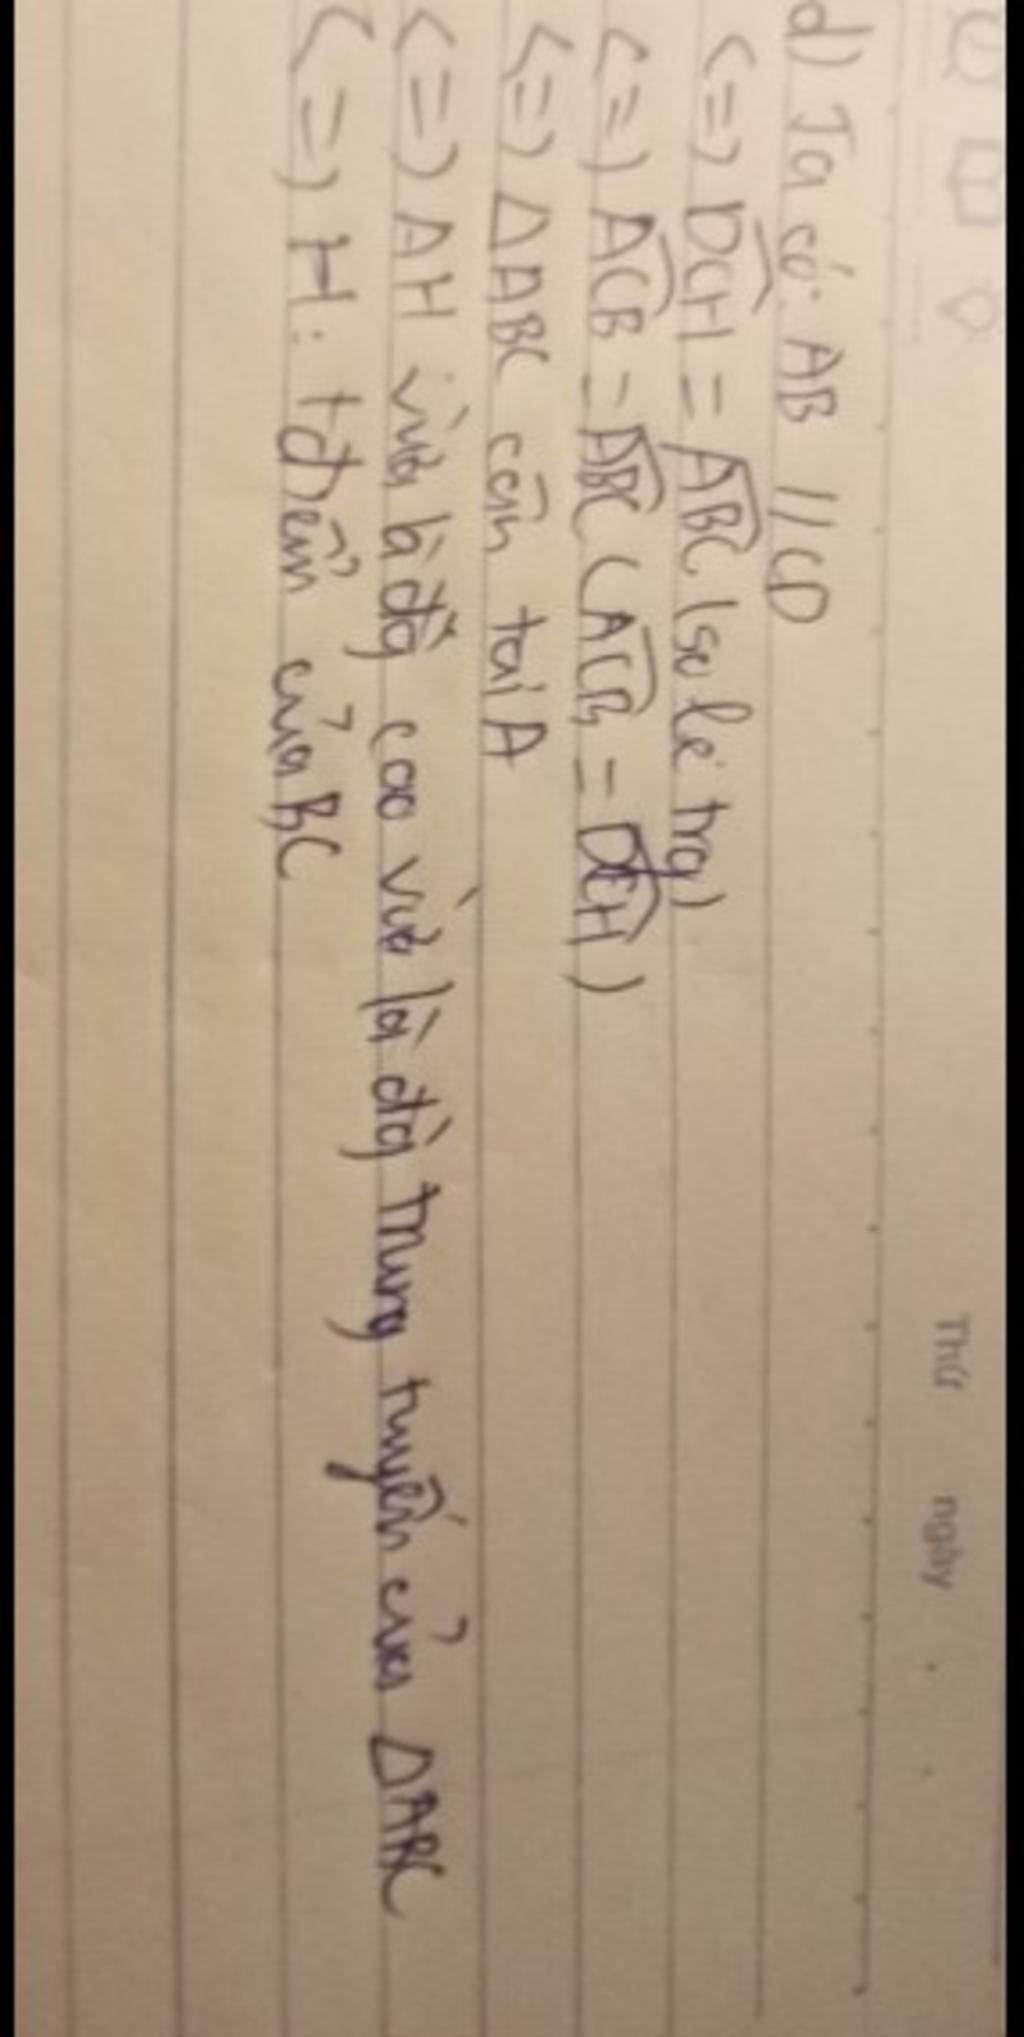 Thứ ngày
d) Ta có: AB // CD
<=> DCH = ABC (so le trg)
<=> ACB = ABC (ACB = DCH)
<=> ΔABC cân tại A
<=> AH vừa là đg cao vừa là đg trung tuyến của ΔABC
<=> H: tđiểm của BC